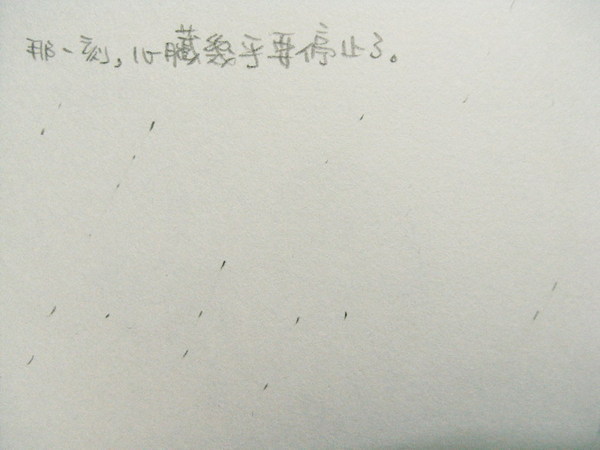 那一刻，心臟幾乎要停止了。